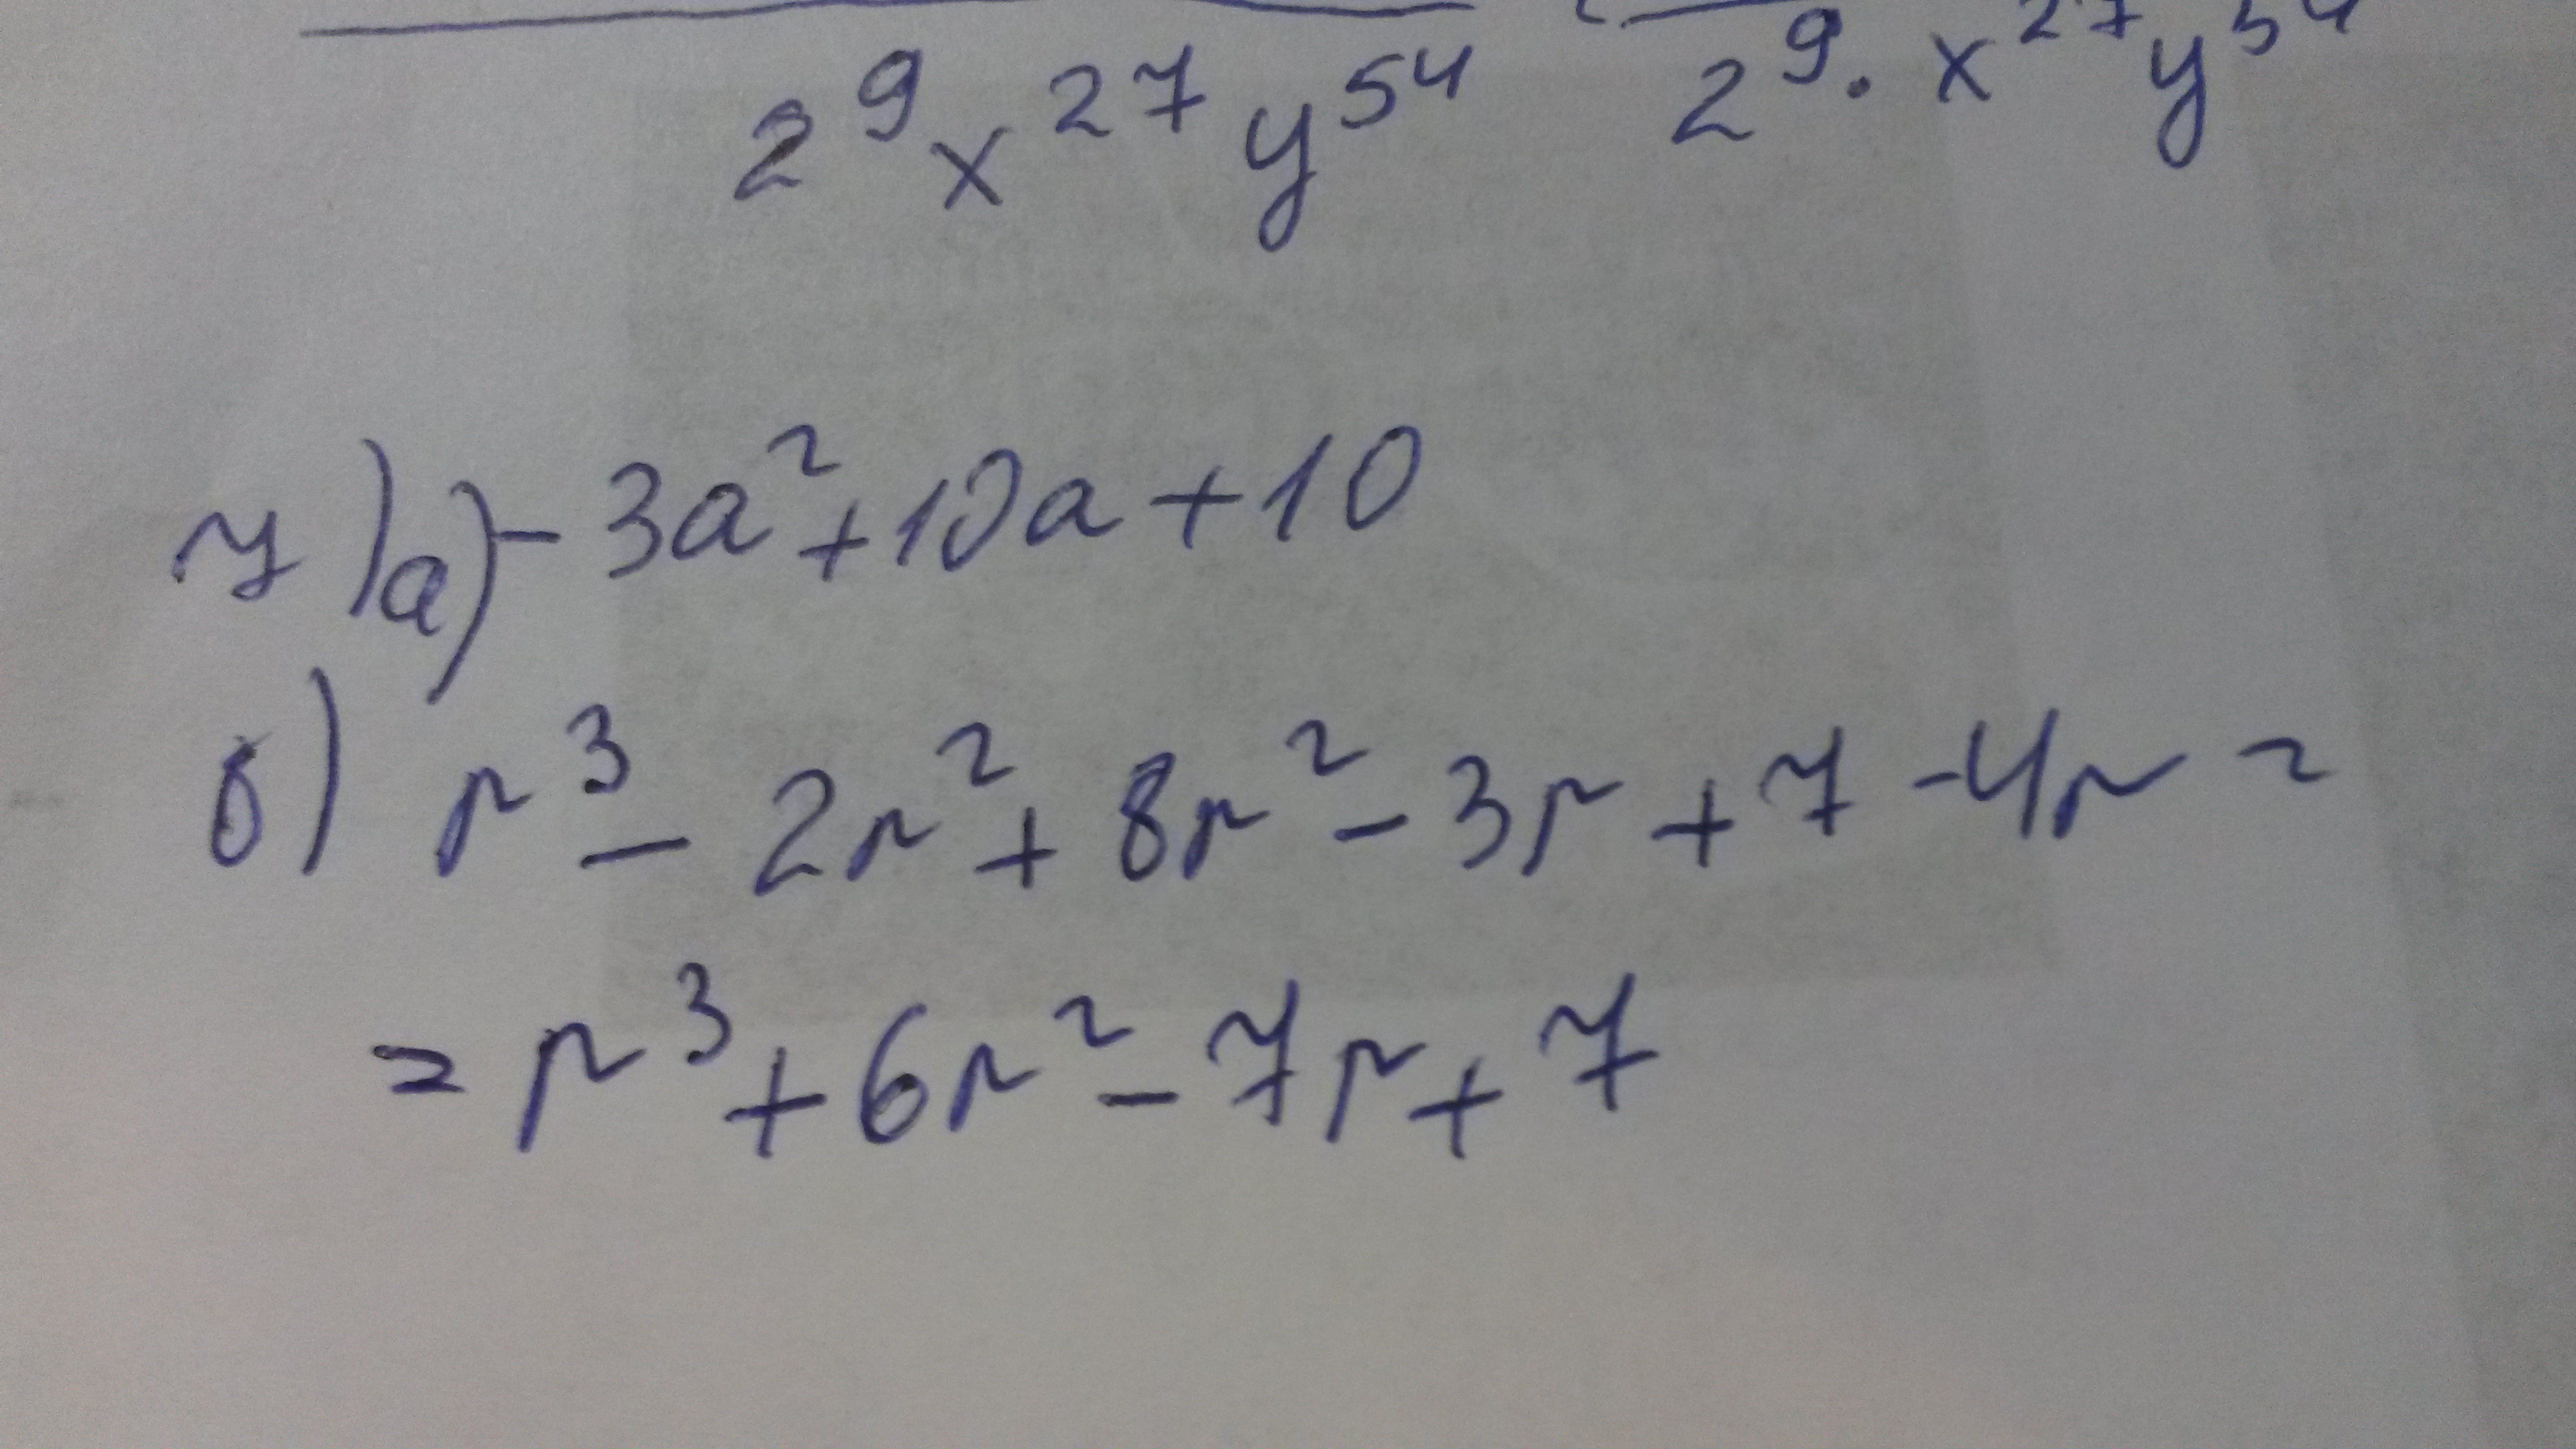 2⁹x²⁷y⁵⁴ 2⁹·x²⁷y⁵⁴
7)а) -3a²+10a+10
б) r³-2r²+8r²-3r+7-4r=
=r³+6r²-7r+7